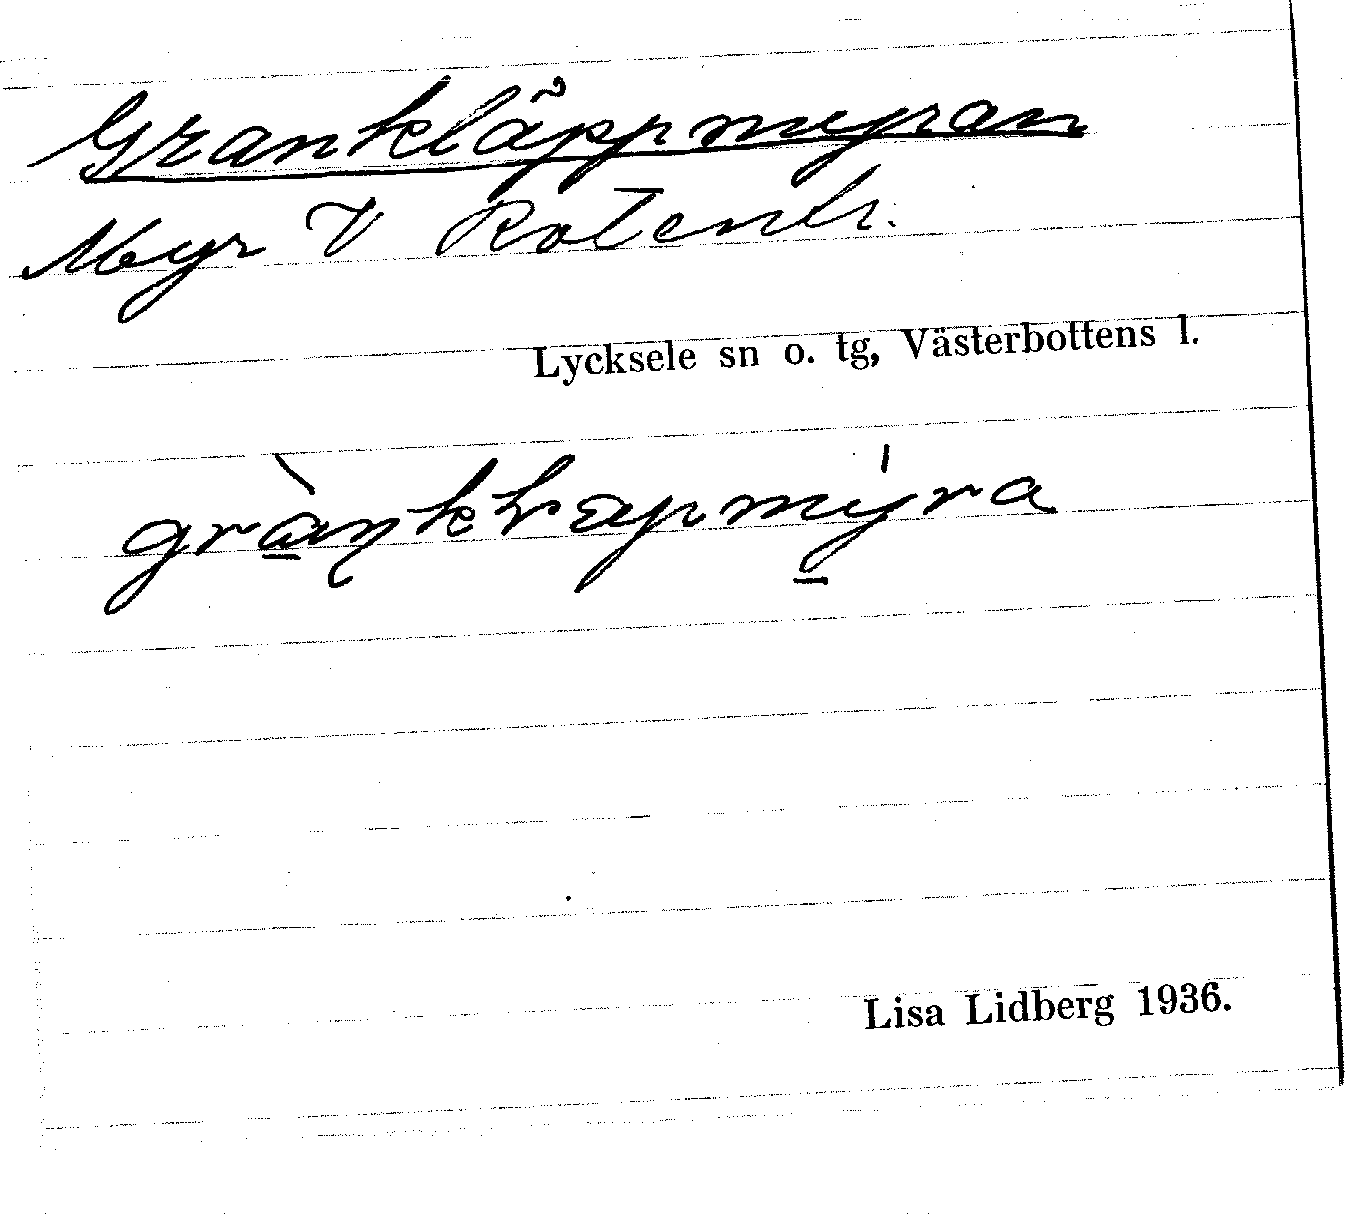 Grankläppmyran
Myr V Rotentr.
Lycksele sn o. tg, Västerbottens l.
Lisa Lidberg 1936.